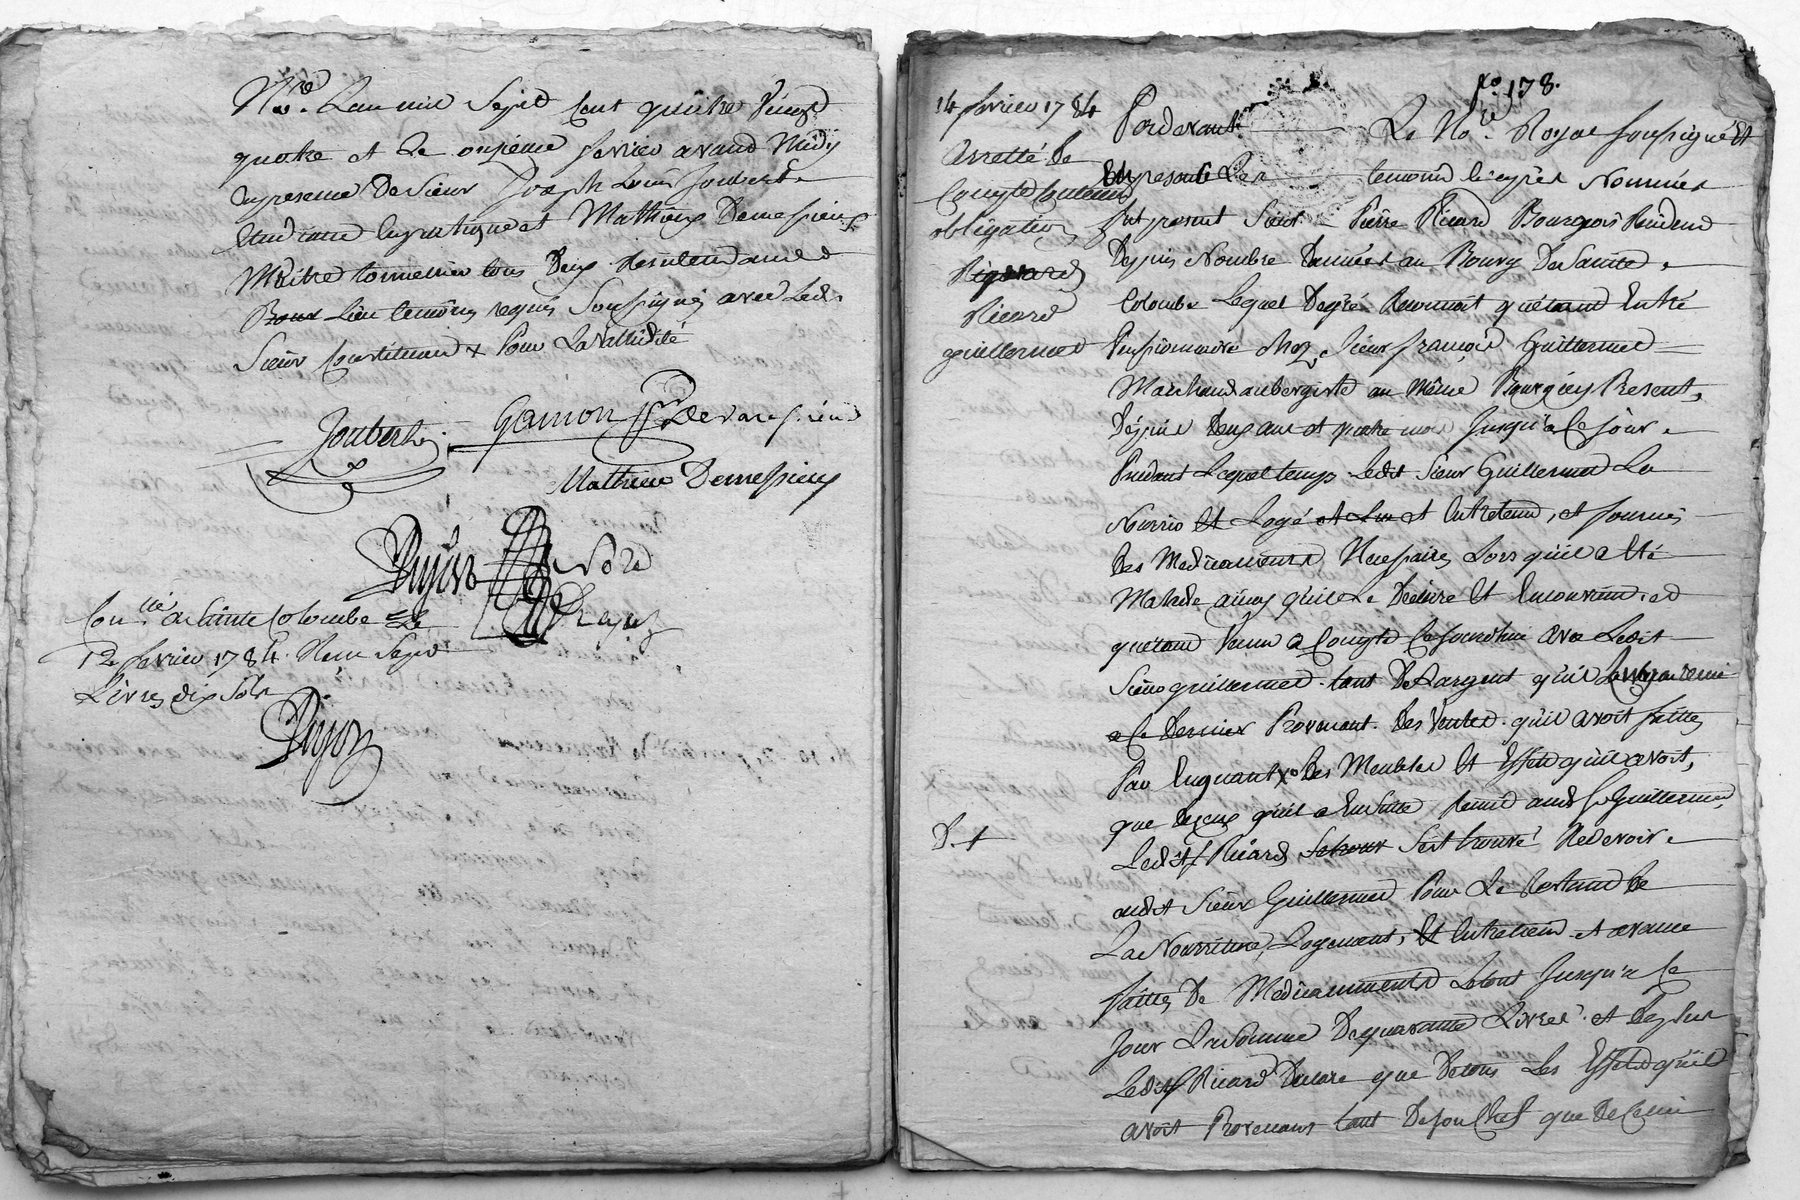 N.re L'an mil Sept Cent quatre Vingt
quatre et Le onzieme fevrier avant Midy
En presence De Sieur Joseph Louis Joubert
Etudiant En pratique et Mathieu Demessieux
Maitre tonnellier tous Deux Residents aud.
Bour Lieu temoins requis Soussignés avec Led.
Sieur Constituant & Pour La validité
Joubert Gamon
Mathieu Demessieux
Dujon
Con.llé a Sainte Colombe Le
12 fevrier 1784. Recu Sept
Livres dix Sols
Dujon
f.o 178.
14 fevrier 1784
Arretté De
Compte Contenant
obligation
Ricard
guillermet
Pardevant Le No.re Royal Soussigné Et
En presence Des temoins cy après Nommés
fut present Sieur Pierre Ricard Bourgeois Resident
Depuis Nombre D'années au Bourg De Sainte
Colombe Lequel De gré Reconnoit qu'étant Entré
Pensionnaire chez Sieur françois Guillermet
Marchand aubergiste au Même Bourg icy Present,
Depuis Deux ans et quatre mois Jusqu'a Ce Jour
Pendant Lequel temps Ledit Sieur Guillermet La
Nourrio Et Logé et Entretenu, et fournis
Les Medicaments Necessaires Lors qu'il a Eté
Malade ainsy qu'il Le Declare Et
qu'étant Venu a Compte Ce Jourd'hui avec Ledit
Sieur guillermet tant De Largent qu'il
a Ce Dernier Provenant Des Ventes qu'il avoit faites
Par Enquant Des Meubles Et Effets qu'il avoit,
que De Ceux qu'il a Ensuite Remis aud. S.r Guillermet
D. +
Ledit S.r Ricard S'est trouvé Redevoir
audit Sieur Guillermet Pour Le Restant De
La Nourriture, Logement, Et Entretient et avance
faites De Medicamments Le tout Jusqu'a Ce
Jour La Somme De quarante Livres et De plus
Ledit S.r Ricard Declare que De tous Les Effets qu'il
avoit Provenans tant De son Chef que De Celui